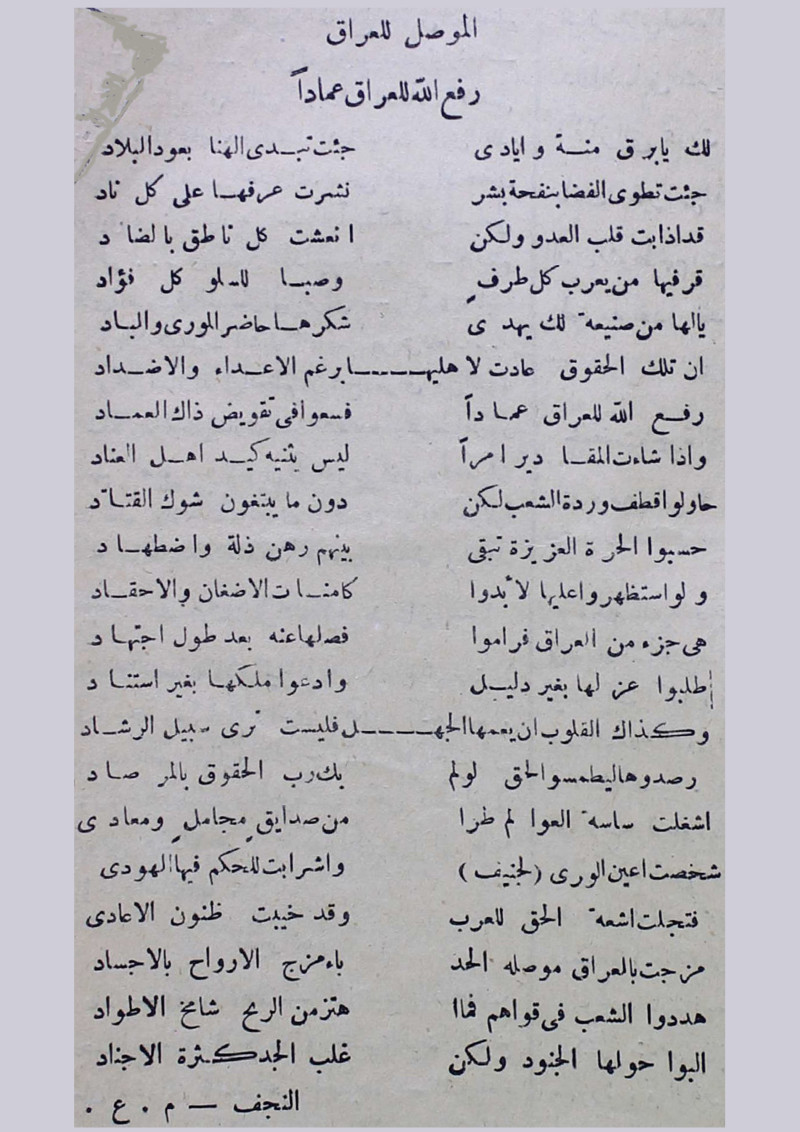 الموصل للعراق
رفع الله للعراق عماداً
لك يابرق منة وايادى جئت تبدى الهنا بعود البلاد
جئت تطوى الفضا بنفحة بشر نشرت عرفها على كل ناد
قد اذابت قلب العدو ولكن انعشت كل ناطق بالضاد
قر فيها من يعرب كل طرفٍ وصبا للسلو كل فؤاد
يالها من صنيعة لك يهدى شكرها حاضر الورى والباد
ان تلك الحقوق عادت لاهليهـــا برغم الاعداء والاضداد
رفع الله للعراق عماداً فسعوا فى تقويض ذاك العماد
واذا شاءت المقادير امراً ليس يثنيه كيد اهل العناد
حاولوا قطف وردة الشعب لكن دون ما يبتغون شوك القتاد
حسبوا الحرة العزيزة تبقى بينهم رهن ذلة واضطهاد
ولو استظهروا عليها لأبدوا كامنات الاضغان والاحقاد
هى جزء من العراق فراموا فصلها عنه بعد طول اجتهاد
طلبوا عزلها بغير دليل وادعوا ملكها بغير استناد
وكذاك القلوب ان يعمها الجهـــل فليست ترى سبيل الرشاد
رصدوها ليطمسوا الحق لولم يك رب الحقوق بالمرصاد
اشغلت ساسة العوالم طرا من صدايق مجاملٍ ومعادى
شخصت اعين الورى (لجنيف) واشرابت للحكم فيها الهوادى
فتجلت اشعة الحق للعرب وقد خيبت ظنون الاعادى
مزجت بالعراق موصله الحدباء مزج الارواح بالاجساد
هددوا الشعب فى قواهم فما اهتز من الريح شامخ الاطواد
البوا حولها الجنود ولكن غلب الجد كثرة الاجناد
النجف — م . ع .